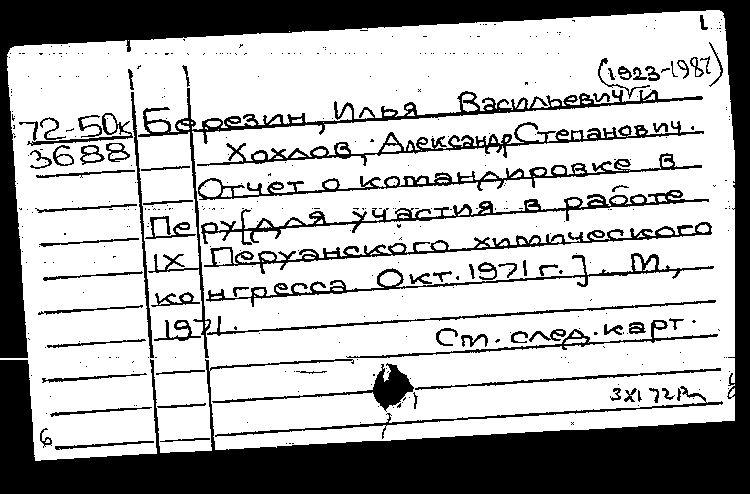 1
(1923-1987)
72-50к Березин, Илья Васильевич и
3688 Хохлов, Александр Степанович.
Отчет о командировке в
Перу [для участия в работе
IX Перуанского химического
конгресса. Окт. 1971 г.]. М.,
1971.
См. след. карт.
3XI 72
6